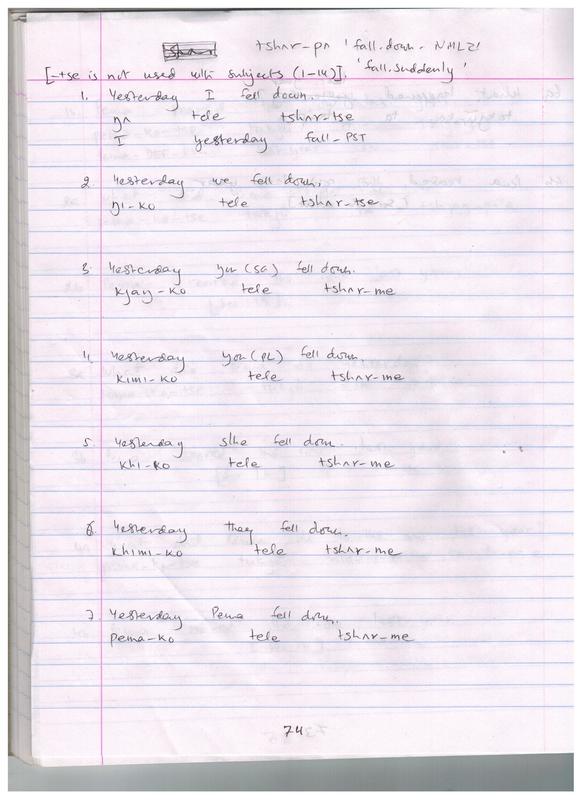 tshʌr-pʌ 'fall.down-NMLZ'
[-tse is not used with subjects (1-14)]. 'fall.suddenly'
1. Yesterday I fell down.
ŋʌ tele tshʌr-tse
I yesterday fall-PST
2. Yesterday we fell down.
ŋi-ko tele tshʌr-tse
3. Yesterday you (SG) fell down.
kjaŋ-ko tele tshʌr-me
4. Yesterday you (PL) fell down.
kimi-ko tele tshʌr-me
5. Yesterday s/he fell down.
khi-ko tele tshʌr-me
6. Yesterday they fell down.
khimi-ko tele tshʌr-me
7. Yesterday Pema fell down.
pema-ko tele tshʌr-me
74